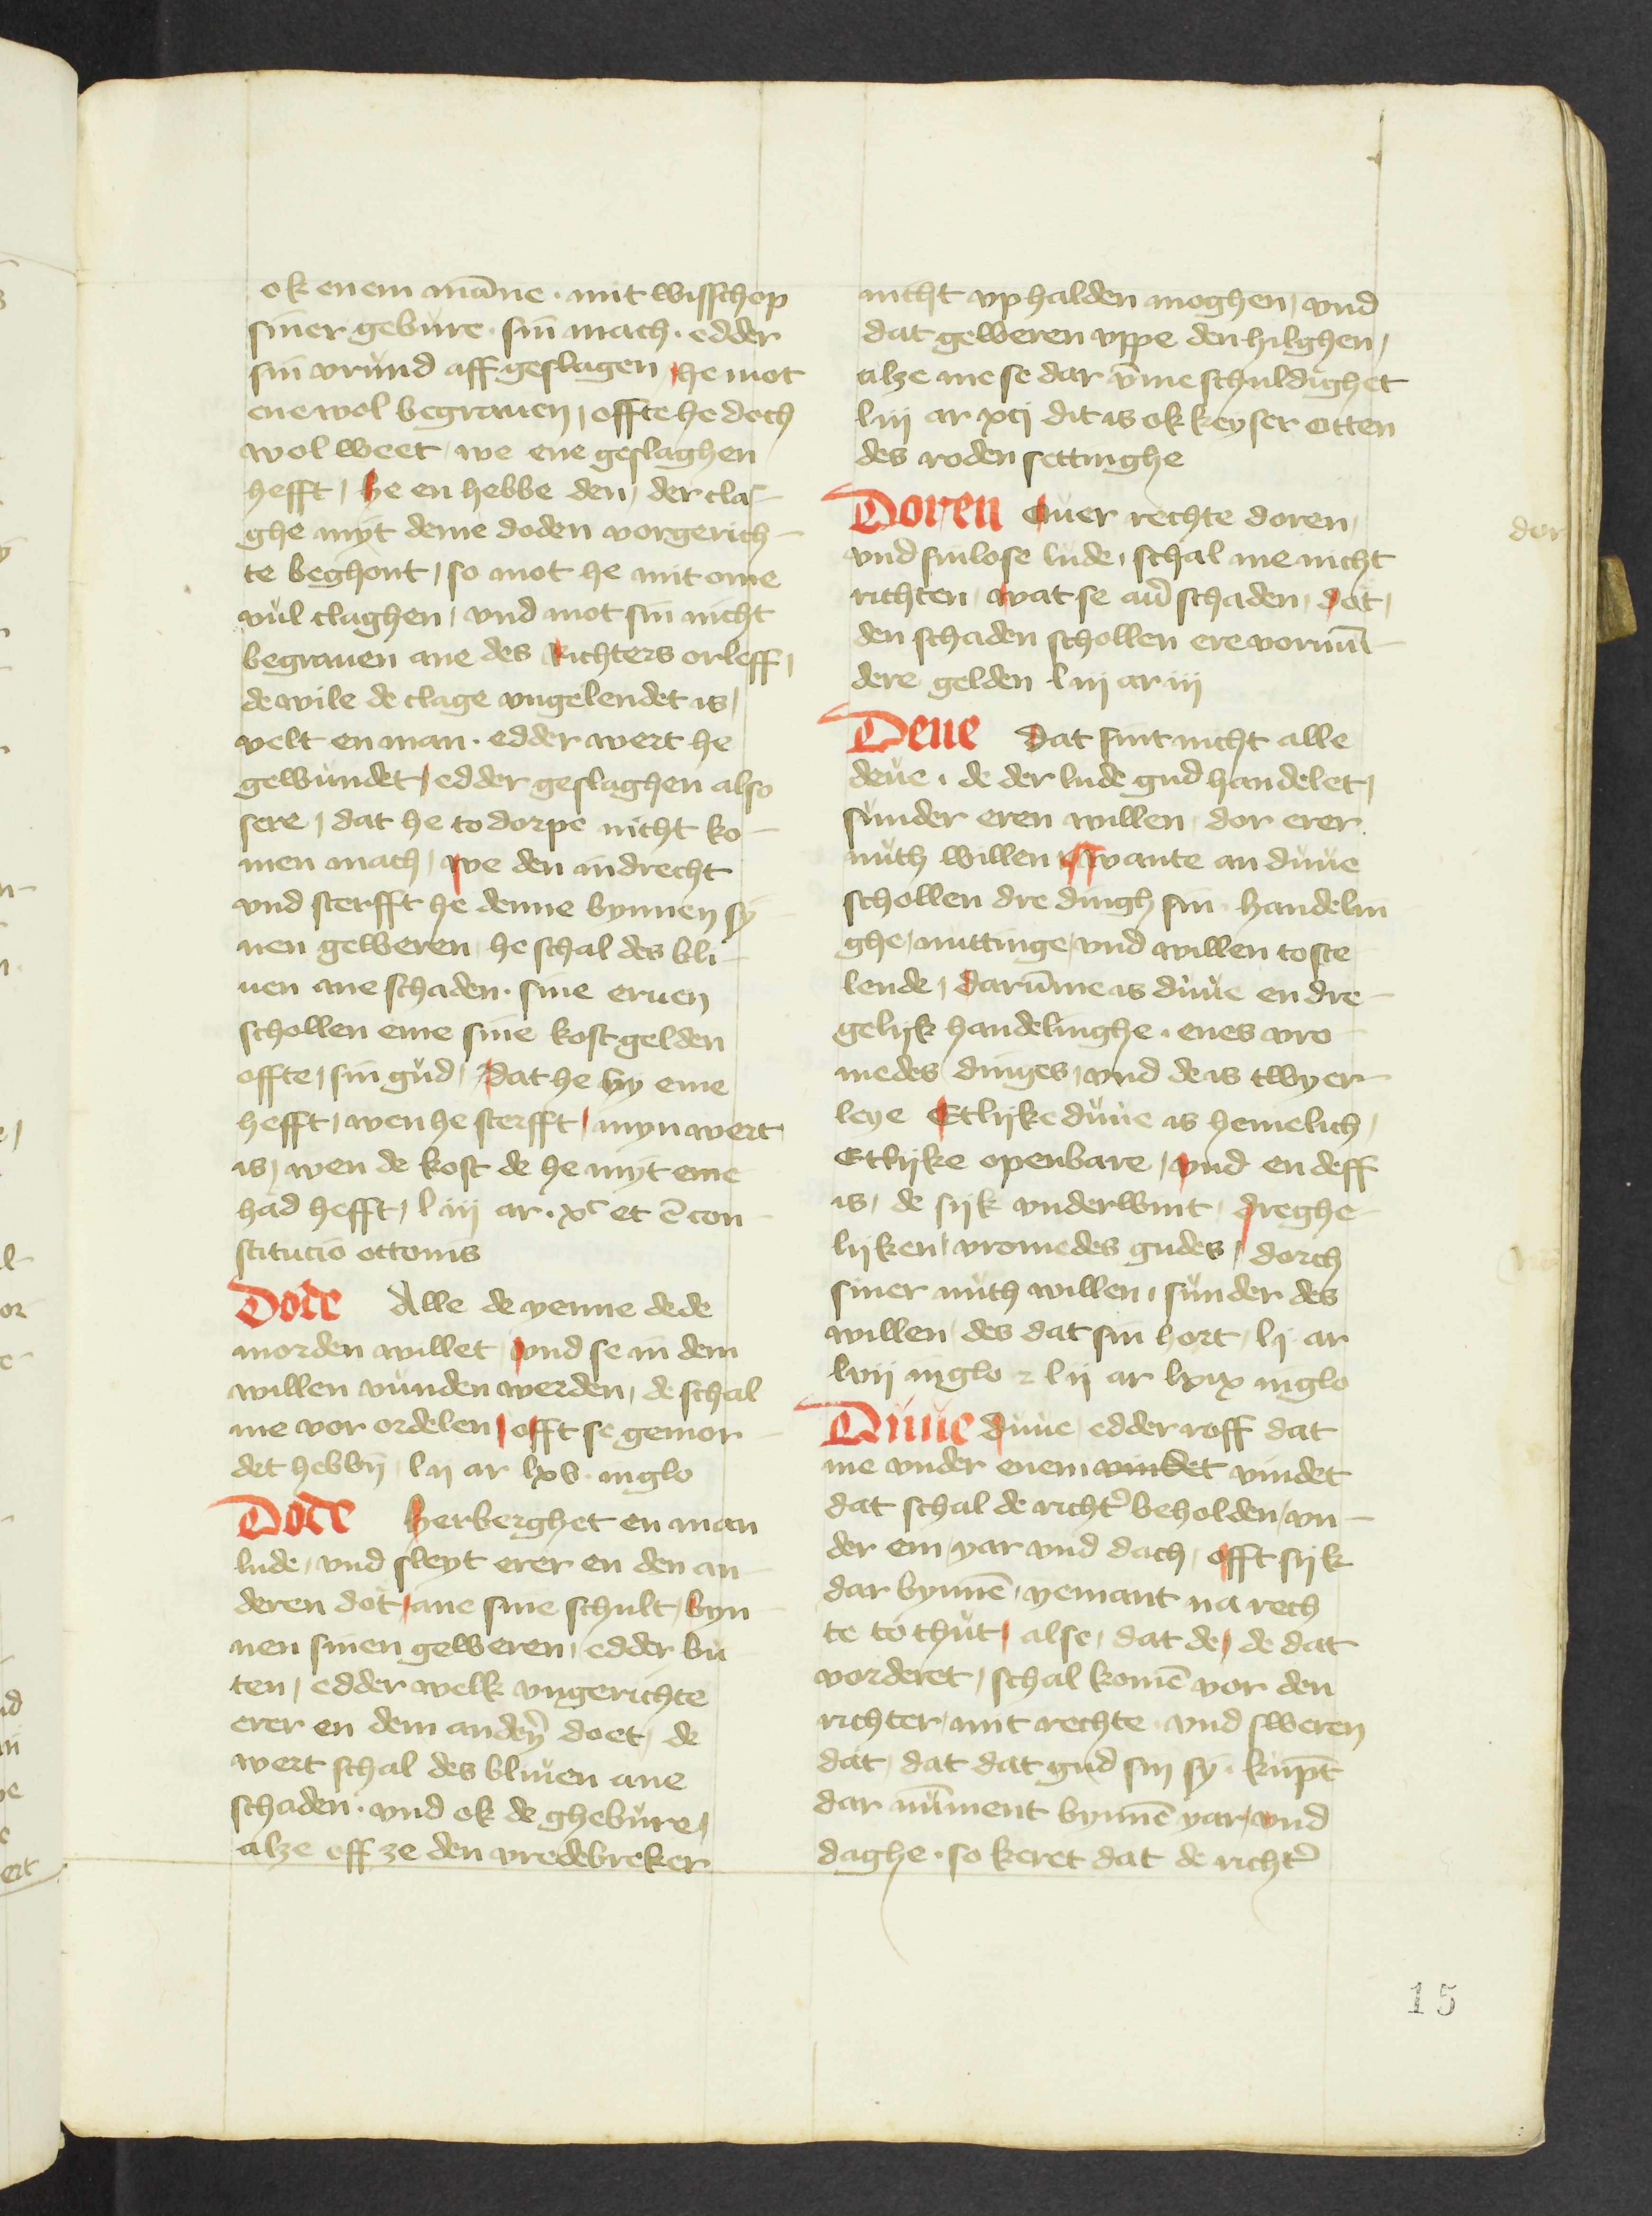 ok enem māne · mit wisschop
siner gebure · sin mach · edder
sin vrund aff geslagen / he mot
ene wol begrauen / offte he doch
wol weet / we ene geslaghen
hefft / he en hebbe den / der cla-
ghe myt deme doden vorgerich-
te beghont / so mot he mit ome
vul claghen / vnd mot sin nicht
begrauen ane des Richters orleff /
de wile de clage vngelendet is /
velt en man · edder wert he
gewundet / edder geslaghen also
sere / dat he to dorpe nicht ko-
men mach / we den indrecht
vnd sterfft he denne bynnen sy-
nen geweren / he schal des bli-
uen ane schaden · sine eruen
schollen eme sine kost gelden
offte / sin gud / dat he by eme
hefft / wen he sterfft / myn wert
is / wen de kost de he myt eme
had hefft / l iij ar · xc et ē con-
stitucio ottonis
Dode Alle de yenne de de
morden willet / vnd se in dem
willen vunden werden / de schal
me vor ordelen / offt se gemor-
det hebbn̄ / l ij ar lxv · inglo
Dode herberghet en man
lude / vnd sleyt erer en den an-
deren dot / ane sine schult / byn-
nen sinen geweren / edder bu-
ten / edder welk vngerichte
erer en dem anderñ doet / de
wert schal des bliuen ane
schaden · vnd ok de ghebure /
alze eff ze den vredebreker
nicht vp halden moghen / vnd
dat geweren vppe den hilghen /
alze me se dar v̄me schuldighet
l iij ar xcj dit is ok keyser otten
des roden settinghe
Doren Ouer rechte doren /
vnd sinlose lude / schal me nicht
richten / wat se au̇ schaden / dot /
den schaden schollen ere vormū-
dere gelden l iij ar iij
Deue Dat sint nicht alle
deue / de der lude gud handelet /
sunder eren willen / dor erer
nuth willen / wante an duue
schollen dre dingh sin / handelin
ghe / nuttinge / vnd willen to ste
lende / darūme is duue en dre-
gelijk handelinghe · enes vro-
medes dinges / vnd de is twyer-
leye Etlijke duue is hemelich /
Etlijke openbare / vnd en deff
is / de sijk vnderwint / dreghe-
lijken / vromedes gudes / dorch
siner nuth willen / sunder des
willen / des dat sin hort / l j · ar
lvij inglo z l ij ar lxix inglo
Duue duue / edder roff dat
me vnder enem vindet vindet
dat schal de richt̄ beholden / vn-
der em / yar vnd dach / offt sijk
dar bynnē / yemant na rech
te to thut / alse / dat de / de dat
vorderet / schal komē vor den
richter / mit rechte · vnd sweren
dat / dat dat gud sin sy · kūpt
dar nūment bynnē yar / vnd
daghe · so keret dat de richt̄
15